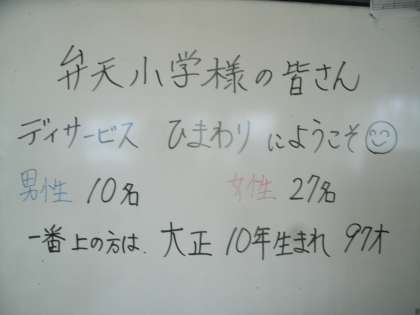 弁天小学様の皆さん
デイサービス ひまわり にようこそ
男性 10名 女性 27名
一番上の方は、大正 10年生まれ 97才